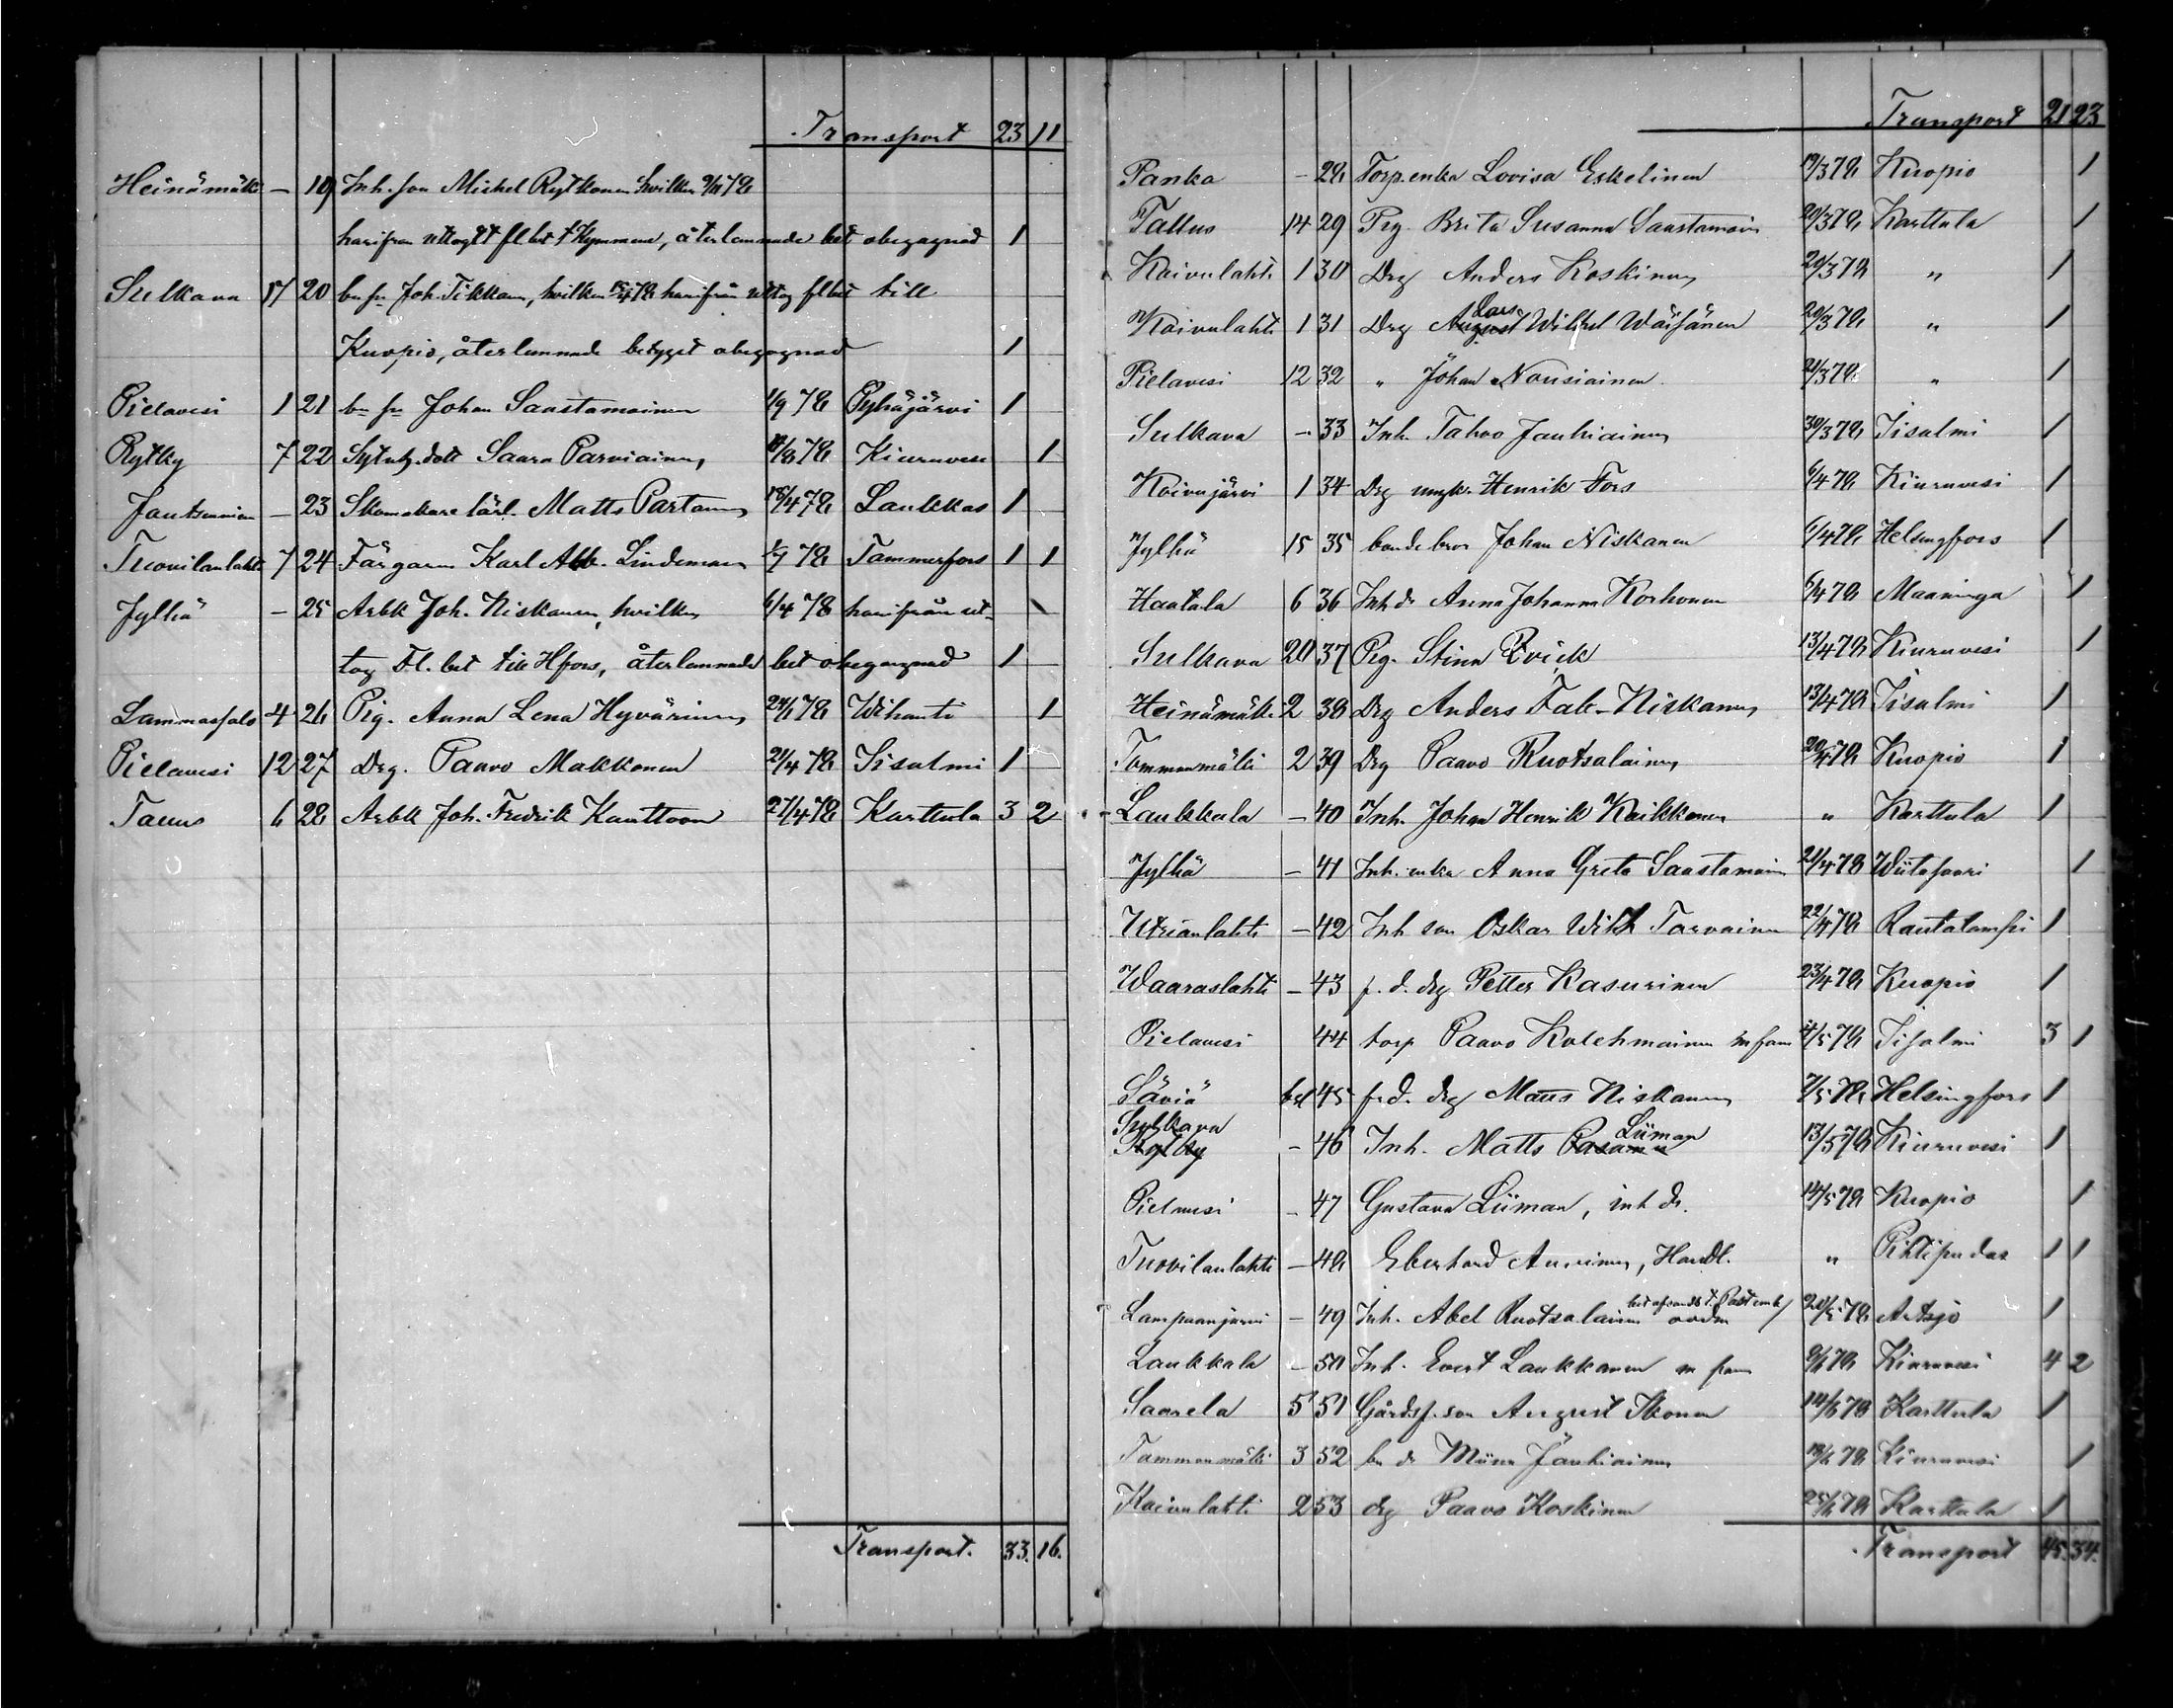 Transport 23 11
Heinämäki – 19 Inh. son Michel Rytkönen hvilken 9/11 78
härifrån uttagit fl bet t Kymmene, återlemnade bet obegagnad 1
Sulkava 17 20 bn sn Joh. Tikkan, hvilken 15/4 78 härifrån uttog fl bet till
Kuopio, återlemnade betyget obegagnad 1
Pielavesi 1 21 bn sn Johan Saastamoinen 1/9 78 Pyhäjärvi 1
Rytky 7 22 Sytnlg. dott Saara Parviainen 78 Kiuruvesi 1
– 23 Skomakare lärl. Matts Partanen 18/4 78 Laukkas 1
Tuovilanlahti 7 24 Färgaren Karl Alb. Lindeman 78 Tammerfors 1 1
Jylhä – 25 Arbk Joh. Niskanen, hvilken 6/4 78 härifrån ut-
tog Fl. bet till Hfors, återlemnade bet obegagnad 1
Lammassalo 4 26 Pig. Anna Lena Hyvärinen 78 Wihanti 1
Pielavesi 12 27 Drg. Paavo Makkonen 21/4 78 Iisalmi 1
Taulus 6 28 Arbk Joh. Fredrik Kauttoon 27/4 78 Karttula 3 2
Transport. 33. 16.
Transport 21 23
Panka – 28 Torp. enka Lovisa Eskelinen 19/3 78 Kuopio 1
Tallus 14 29 Pig. Brita Susanna Saastamoin 20/3 78 Karttula 1
Koivulahti 1 30 Drg Anders Koskinen 20/3 78 " 1
Koivulahti 1 31 Drg August Lars Wilhel Wäisänen 20/3 78 " 1
Pielavesi 12 32 " Johan Nousiainen 21/3 78 " 1
Sulkava – 33 Inh. Tahvo Jauhiainen 30/3 78 Iisalmi 1
Koivujärvi 1 34 Drg ungk. Henrik Fors 6/4 78 Kiuruvesi 1
Jylhä 15 35 bonde bror Johan Niskanen 6/4 78 Helsingfors 1
Haatala 6 36 Inh dr Anna Johanna Korhonen 6/4 78 Maaninga 1
Sulkava 20 37 Pig. Stina Qvick 13/4 78 Kiuruvesi 1
Heinämäki 2 38 Drg Anders Fab. Niskanen 13/4 78 Iisalmi 1
Tommonmäki 2 39 Drg Paavo Ruotsalainen 20/4 78 Kuopio 1
Laukkala – 40 Inh. Johan Henrik Kaikkonen " Karttula 1
Jylhä – 41 Inh. enka Anna Greta Saastamoin 21/4 78 Wiitasaari 1
Utrianlahti – 42 Inh son Oskar Wilh Tarvainen 22/4 78 Rautalampi 1
Waaraslahti – 43 f. d. drg. Petter Kasurinen 23/4 78 Kuopio 1
Pielavesi 44 torp Paavo Kolehmainen m fam 4/5 78 Iisalmi 3 1
Säviä bst 45 f. d. drg Matts Niskanen 7/5 78 Helsingfors 1
Sulkava
Rytky – 46 Inh. Matts Pasanen Liiman 13/5 78 Kiuruvesi 1
Pielavesi – 47 Gustava Liiman, inh dr. 14/5 78 Kuopio 1
Tuovilanlahti – 48 Eberhard Auvinen, Handl. " Pihtipudas 1 1
Lampaanjärvi – 49 Inh. Abel Ruotsalainen 20/5 78 Artsjö 1
Laukkala – 50 Inh. Evert Laukkanen m fam 78 Kiuruvesi 4 2
Saarela 5 51 Gårds. son August Ikonen 78 Karttula 1
Tommonmäki 3 52 bn dr Miina Jauhiainen 78 Kiuruvesi 1
Koivulahti 2 53 drg Paavo Koskinen 78 Karttula 1
Transport 45. 34.